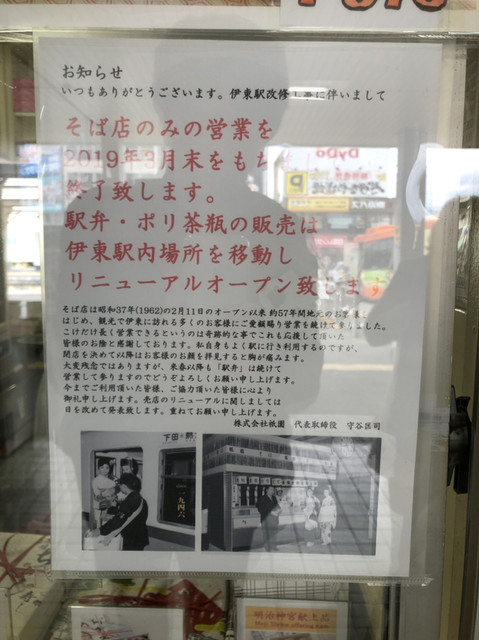 お知らせ
いつもありがとうございます。伊東駅改修工事に伴いまして
そば店のみの営業を
2019年3月末をもち
終了致します。
駅弁・ポリ茶瓶の販売は
伊東駅内場所を移動し
リニューアルオープン致しま
そば店は昭和37年(1962)の2月11日のオープン以来 約57年間地元のお客様
はじめ、観光で伊東に訪れる多くのお客様にご愛顧賜り営業を続けて参りました。
こけだけ長く営業できるというのは奇跡的な事でこれも応援して頂いた
皆様のお陰と感謝しております。私自身もよく駅に行き利用するのですが、
閉店を決めて以降はお客様のお顔を拝見すると胸が痛みます。
大変残念ではありますが、来春以降も「駅弁」は続けて
営業して参りますのでどうぞよろしくお願い申し上げます。
今までご利用頂いた皆様、ご協力頂いた皆様に心より
御礼申し上げます。売店のリニューアルに関しましては
日を改めて発表致します。重ねてお願い申し上げます。
株式会社祇園 代表取締役 守谷匡司
下田
一九四六
明治神宮献上品